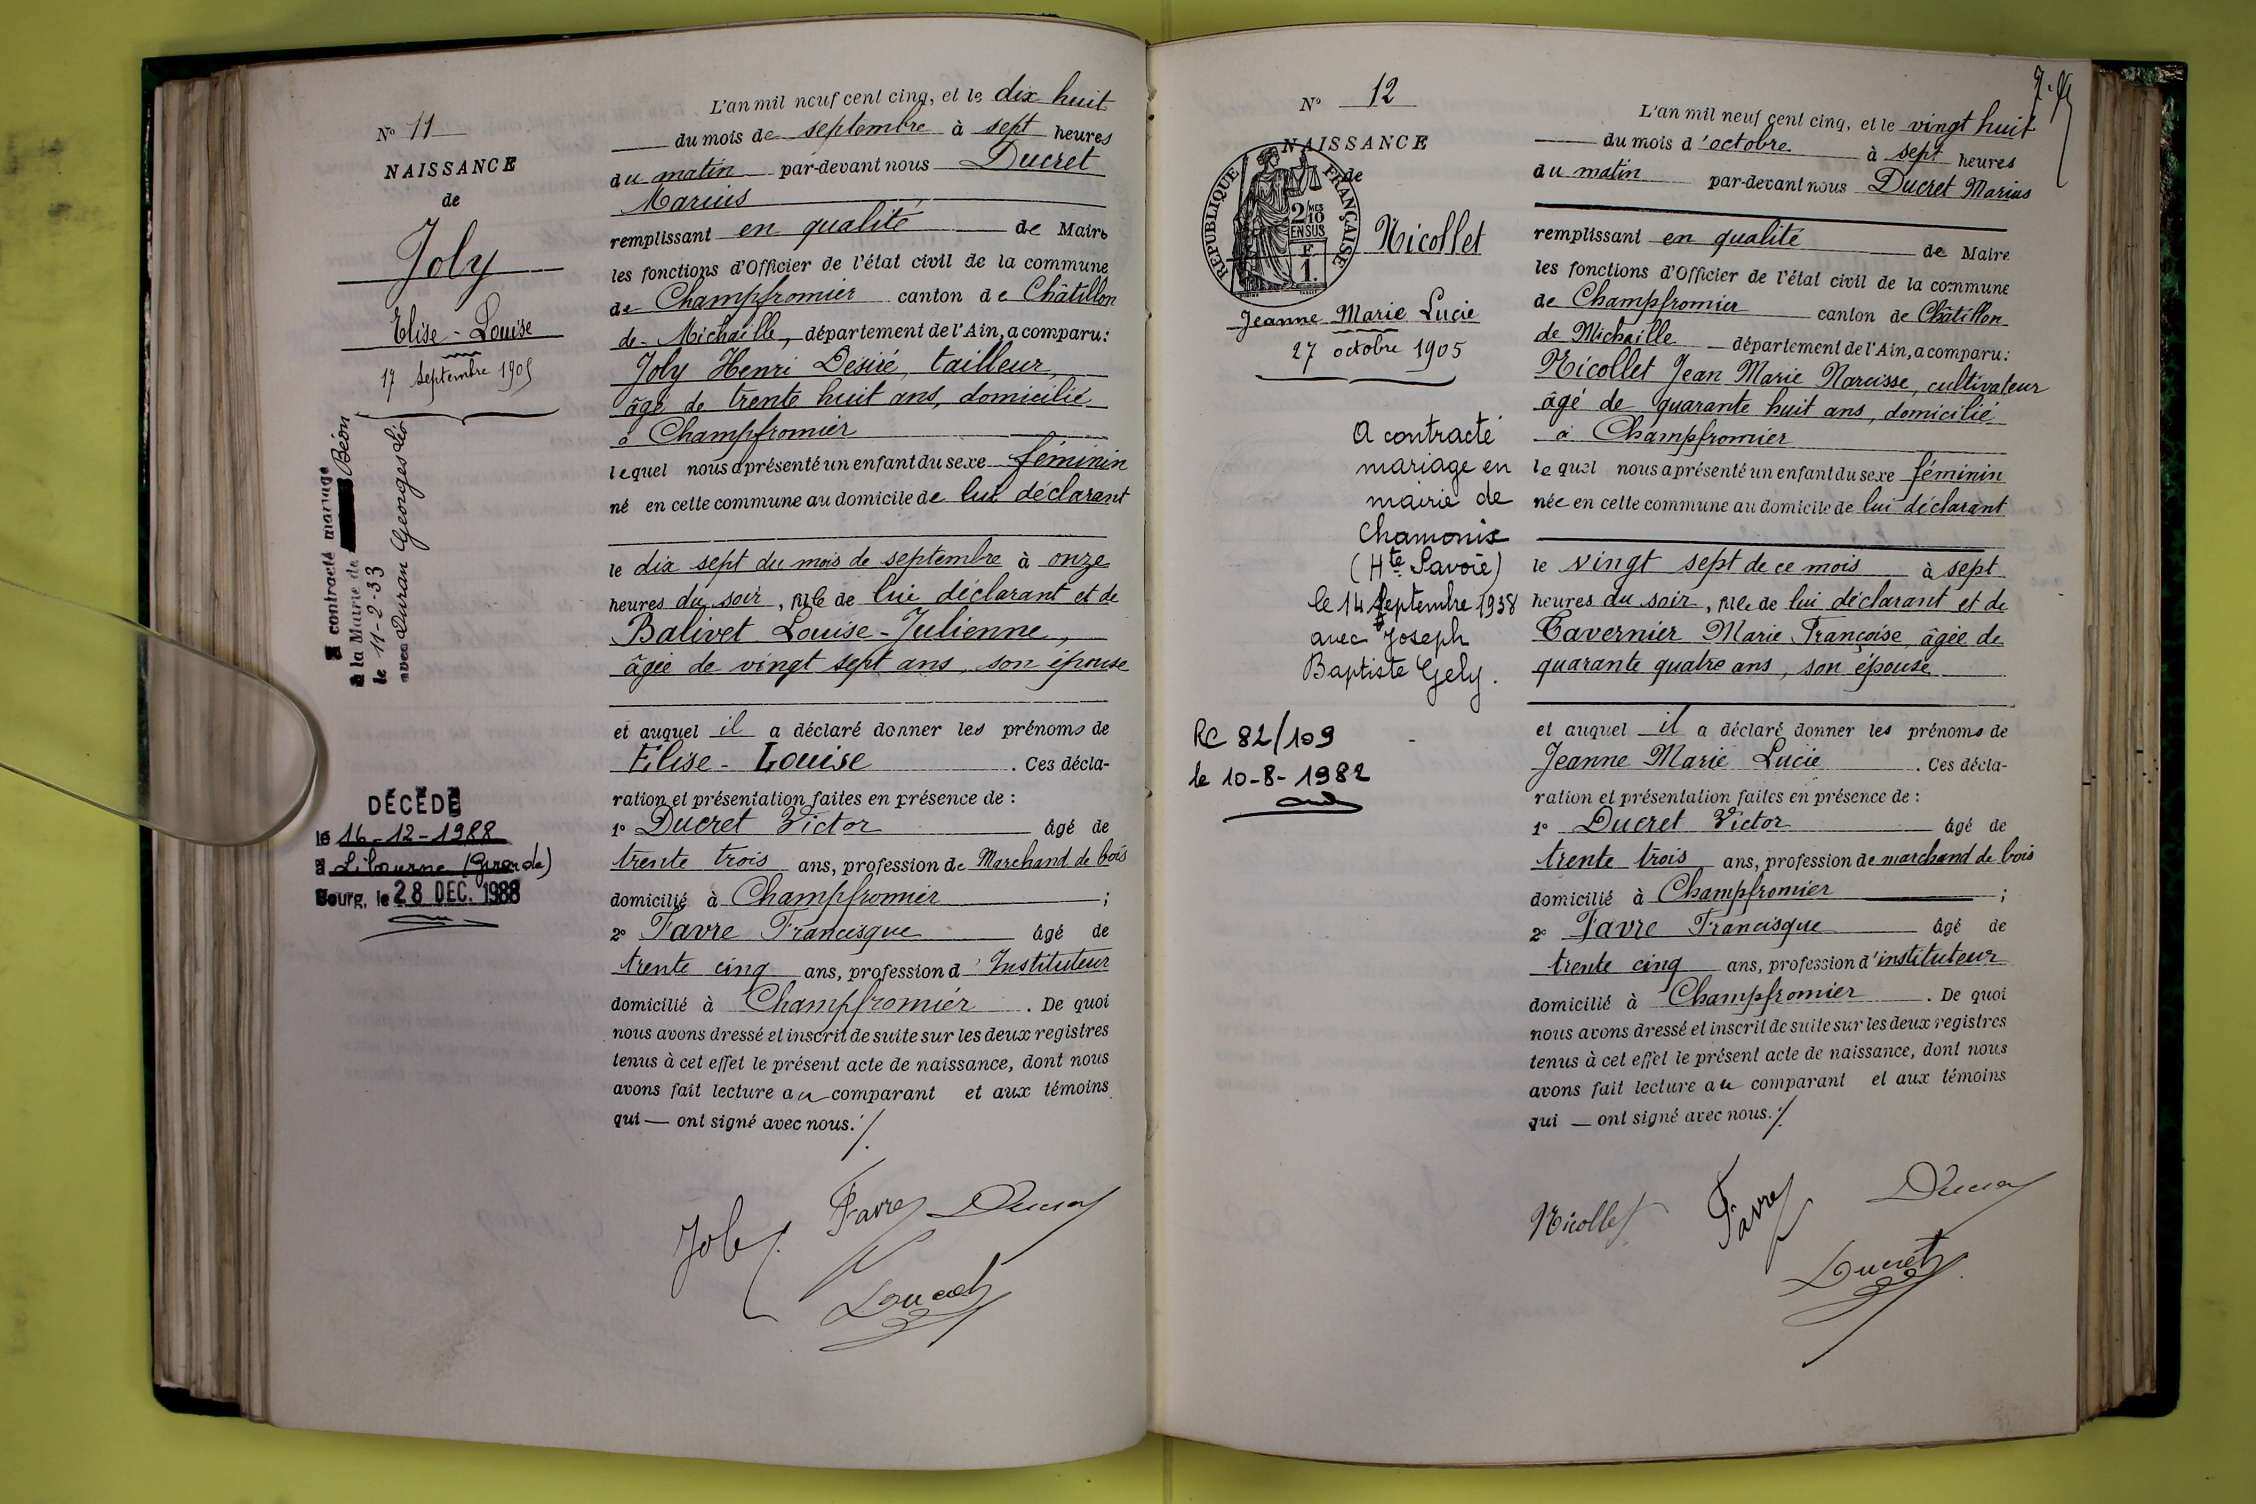 N° 11
NAISSANCE
de
Joly
Elise-Louise
17 septembre 1905
a contracté mariage
à la Mairie de Béon
le 11-2-33
avec Duran Georges Léo
DÉCÉDÉ
le 16-12-1988
à Libourne (Gironde)
Bourg, le 28 DEC. 1988
L'an mil neuf cent cinq, et le dix huit
du mois de septembre à sept heures
du matin par-devant nous Ducret
Marius
remplissant en qualité de Maire
les fonctions d'Officier de l'état civil de la commune
de Champfromier canton de Châtillon
de-Michaille, département de l'Ain, a comparu:
Joly Henri Désiré, tailleur,
âgé de trente huit ans, domicilié
à Champfromier
lequel nous a présenté un enfant du sexe féminin
né en cette commune au domicile de lui déclarant
le dix sept du mois de septembre à onze
heures du soir, fille de lui déclarant et de
Balivet Louise-Julienne,
âgée de vingt sept ans, son épouse
et auquel il a déclaré donner les prénoms de
Elise-Louise. Ces décla-
ration et présentation faites en présence de:
1° Ducret Victor âgé de
trente trois ans, profession de Marchand de bois
domicilié à Champfromier;
2° Favre Francisque âgé de
trente cinq ans, profession d'Instituteur
domicilié à Champfromier. De quoi
nous avons dressé et inscrit de suite sur les deux registres
tenus à cet effet le présent acte de naissance, dont nous
avons fait lecture au comparant et aux témoins
qui — ont signé avec nous./.
Joly Favre Ducret
Ducret
N° 12
NAISSANCE
de
RÉPUBLIQUE FRANÇAISE
2/10 MES
EN SUS
F
1.
Nicollet
Jeanne Marie Lucie
27 octobre 1905
A contracté
mariage en
mairie de
Chamonix
(Hte Savoie)
le 14 septembre 1938
avec Joseph
Baptiste Gely.
RC 82/109
le 10-8-1982
L'an mil neuf cent cinq, et le vingt huit
du mois d'octobre à sept heures
du matin par-devant nous Ducret Marius
remplissant en qualité de Maire
les fonctions d'Officier de l'état civil de la commune
de Champfromier canton de Châtillon
de Michaille département de l'Ain, a comparu:
Nicollet Jean Marie Narcisse, cultivateur
âgé de quarante huit ans, domicilié
à Champfromier
lequel nous a présenté un enfant du sexe féminin
née en cette commune au domicile de lui déclarant
le vingt sept de ce mois à sept
heures du soir, fille de lui déclarant et de
Tavernier Marie Françoise, âgée de
quarante quatre ans, son épouse
et auquel il a déclaré donner les prénoms de
Jeanne Marie Lucie. Ces décla-
ration et présentation faites en présence de:
1° Ducret Victor âgé de
trente trois ans, profession de marchand de bois
domicilié à Champfromier;
2° Favre Francisque âgé de
trente cinq ans, profession d'instituteur
domicilié à Champfromier. De quoi
nous avons dressé et inscrit de suite sur les deux registres
tenus à cet effet le présent acte de naissance, dont nous
avons fait lecture au comparant et aux témoins
qui — ont signé avec nous./.
Nicollet Favre Ducret
Ducret